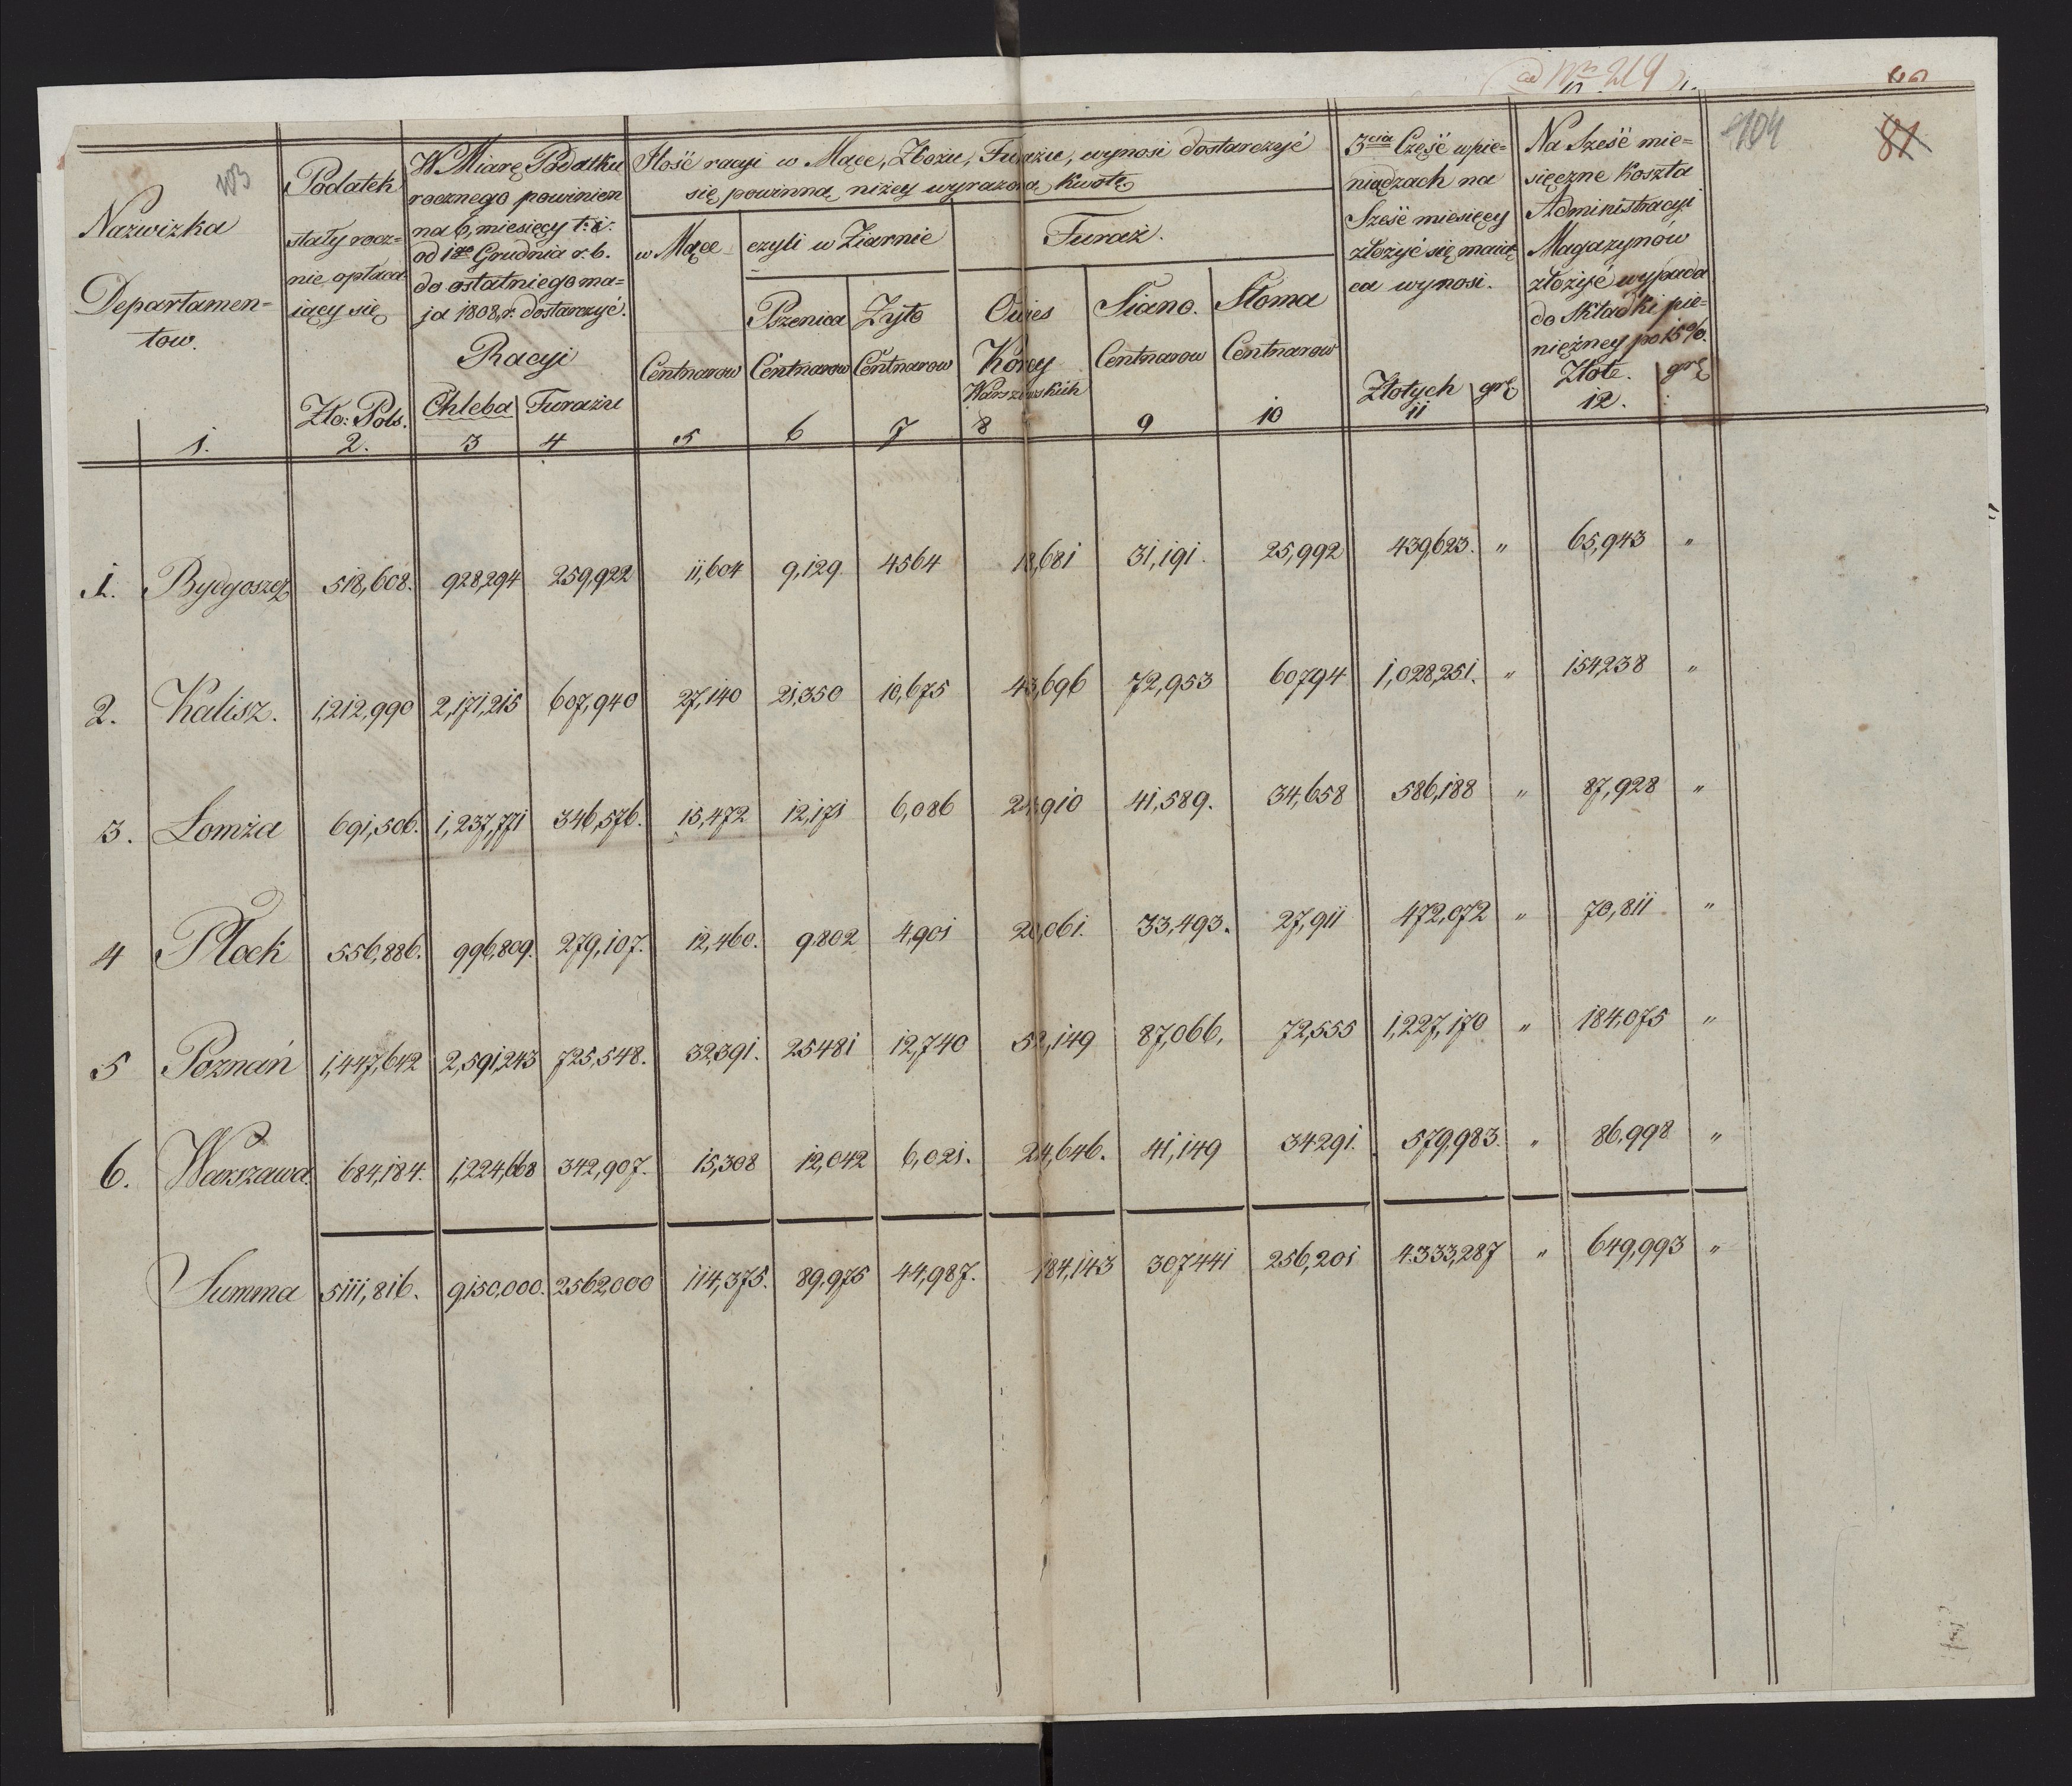 ad Nro 219
103
104
81
Nazwizka
Departamen=
tow.
1.
Podatek
stały rocz=
nie opłaca
iący się
Zło: Pols.
2.
W Miarę Podatku
rocznego powinien
na 6, miesięcy t: i:
od 1go Grudnia r. b.
do ostatniego ma=
ja 1808, r. dostarczyć.
Racyi
Chleba | Furażu
3 4
Ilość racyi w Mące, Zbożu, Furażu, wynosi dostarczyć
się powinną niżey wyrazoną kwotę
w Mące czyli w Ziarnie Furaż.
Pszenica Żyto Owies Siano. Słoma
Centnarow Centnarow Centnarow Korcy Centnarow Centnarow
Warszawskich
5 6 7 8 9 10
3cia Część w pie=
niądzach na
Sześć miesięcy
złożyć się maią
ca wynosi.
Złotych | grę
11
Na Sześć mie=
sięczne koszta
Administracyi
Magazynów
złożyć wypada
do Składki pie=
niężney po 15%.
Złote. | grę
12.
1. Bydgoszcz 518,608. 928,294 259,922 11,604 9,129. 4564 18,681 31,191. 25,992 439,623. " 65,943 "
2. Kalisz. 1,212,990 2,171,215 607,940 27,140 21,350 10,675 43,696 72,953 60794 1,028,251. " 154,238 "
3. Lomża 691,506. 1,237,771 346,576. 15,472 12,171 6,086 24,910 41,589. 34,658 586,188 " 87,928 "
4 Płock 556,886. 996,809. 279,107. 12,460. 9,802 4,901 20,061. 33,493. 27,911 472,072 " 70,811 "
5 Poznań 1,447,642 2,591,243 725,548. 32,391. 25481 12,740 52,149 87,066, 72,555 1,227,170 " 184,075 "
6. Warszawa. 684,184. 1,224,668 342,907. 15,308 12,042 6,021. 24,646. 41,149 34291. 579,983. " 86,998 "
Summa 5111,816. 9150,000. 2562,000 114,375. 89,975 44,987. 184,143 307441 256,201 4.333,287 " 649,993 "